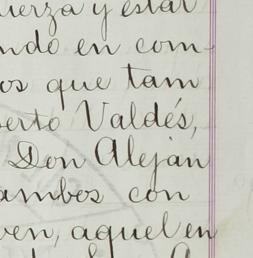 uerza y estar
ndo en com-
os que tam
berto Valdés,
Don Alejan
ambos con
ven, aquel en